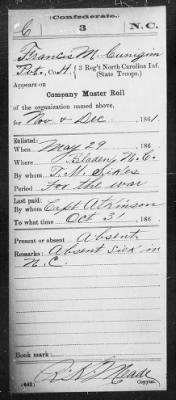 Confederate.
C 3 N.C.
Francis M
Pvt., Co. H, 3 Reg't North Carolina Inf.
(State Troops.)
Appears on
Company Muster Roll
of the organization named above,
for Nov & Dec, 1861.
Enlisted:
When May 29, 186
Where Bladen, N.C.
By whom T. M. Sikes
Period For the war
Last paid:
By whom Capt Atkinson
To what time Oct 31, 186
Present or absent Absent
Remarks: Absent Sick in
N.C.
Book mark:
Meade
(642) Copyist.